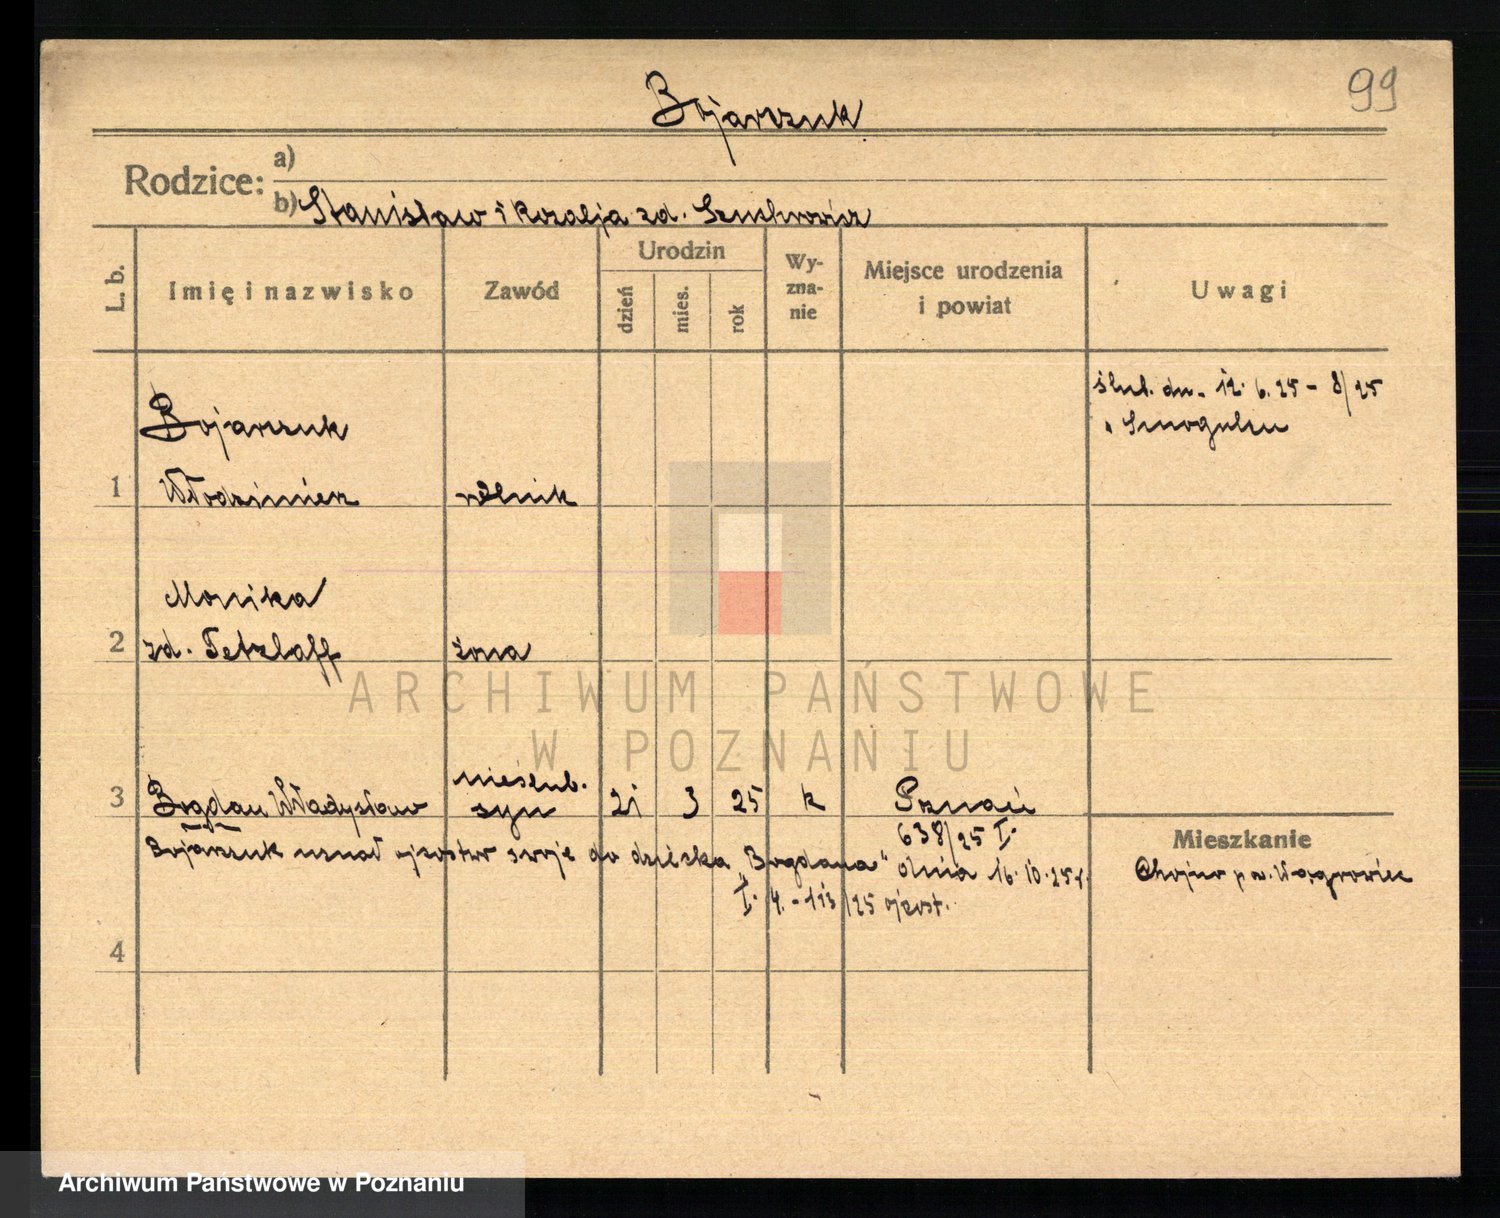 99
Bojarczuk
Rodzice:
a)
b) Stanisław i Rozalja zd.
L. b.
Imię i nazwisko
Zawód
Urodzin
dzień
mies.
rok
Wy-
zna-
nie
Miejsce urodzenia
i powiat
Uwagi
ślub. dn. 12. 6. 25 - 8/25
Smogulcu
Bojarczuk
1 Włodzimierz rolnik
Monika
2 zd. Tetzlaff żona
nieślub.
3 Bogdan Władysław syn 21 3 25 k Poznań
638/25 I.
Bojarczuk uznał ojcostwo swoje do dziecka „Bogdana" dnia 16.10.25r.
I. 4. - 113/25 ojcost.
Mieszkanie
Chojno pow. Wągrowiec
4
ARCHIWUM PAŃSTWOWE
W POZNANIU
Archiwum Państwowe w Poznaniu